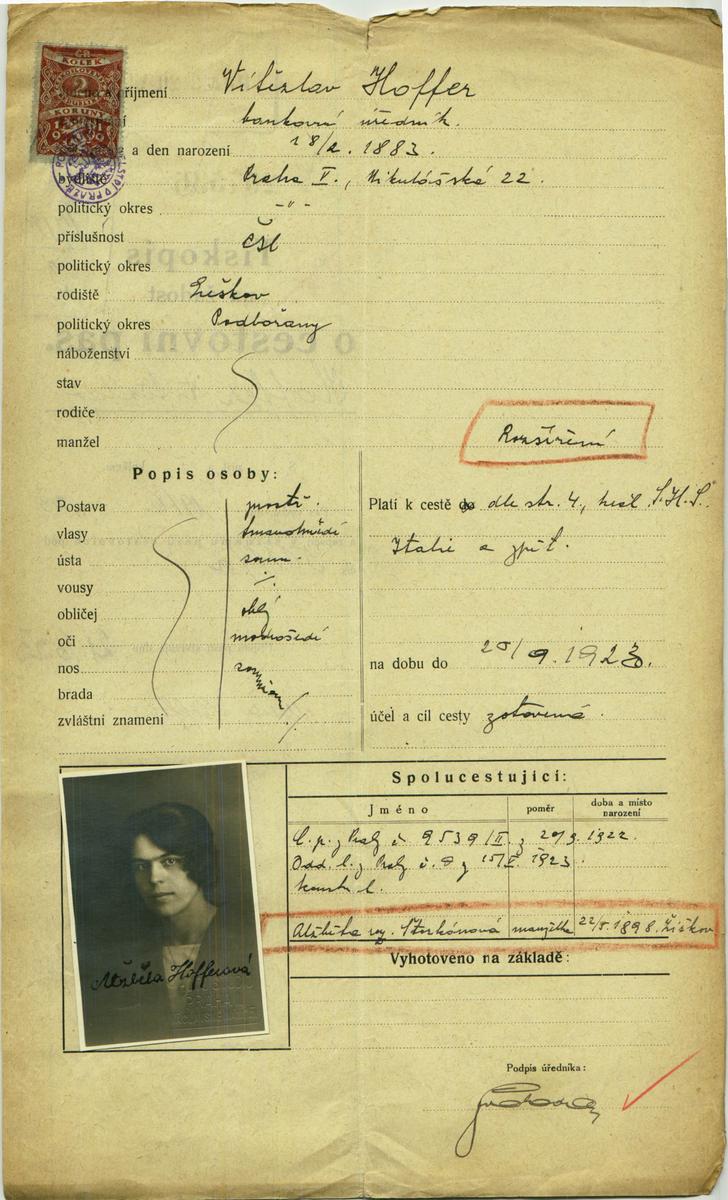 KOLEK
2
KORUNY
příjmení Vítězslav Hoffer
bankovní úředník.
a den narození 18/2. 1883.
bydliště Praha V., Mikulášská 22.
politický okres -"-
příslušnost čsl
politický okres
rodiště
politický okres Podbořany
náboženství
stav
rodiče
manžel
Rozšíření
Popis osoby:
Postava prostř.
vlasy tmavohnědé
ústa soum.
vousy ./.
obličej oblý
oči modrošedé
nos
brada
zvláštní znamení ./.
Platí k cestě do dle str. 4., S.H.S.
Italie a zpět.
na dobu do 20/9. 1923.
účel a cíl cesty zotavená.
Spolucestující:
Jméno poměr doba a místo narození
C. p. z č. 9539/II z 20/9. 1922.
Odd. č. 1923.
Alžběta roz. manželka 22/5. 1898. Žižkov
Alžběta Hofferová
Vyhotoveno na základě:
Podpis úředníka: